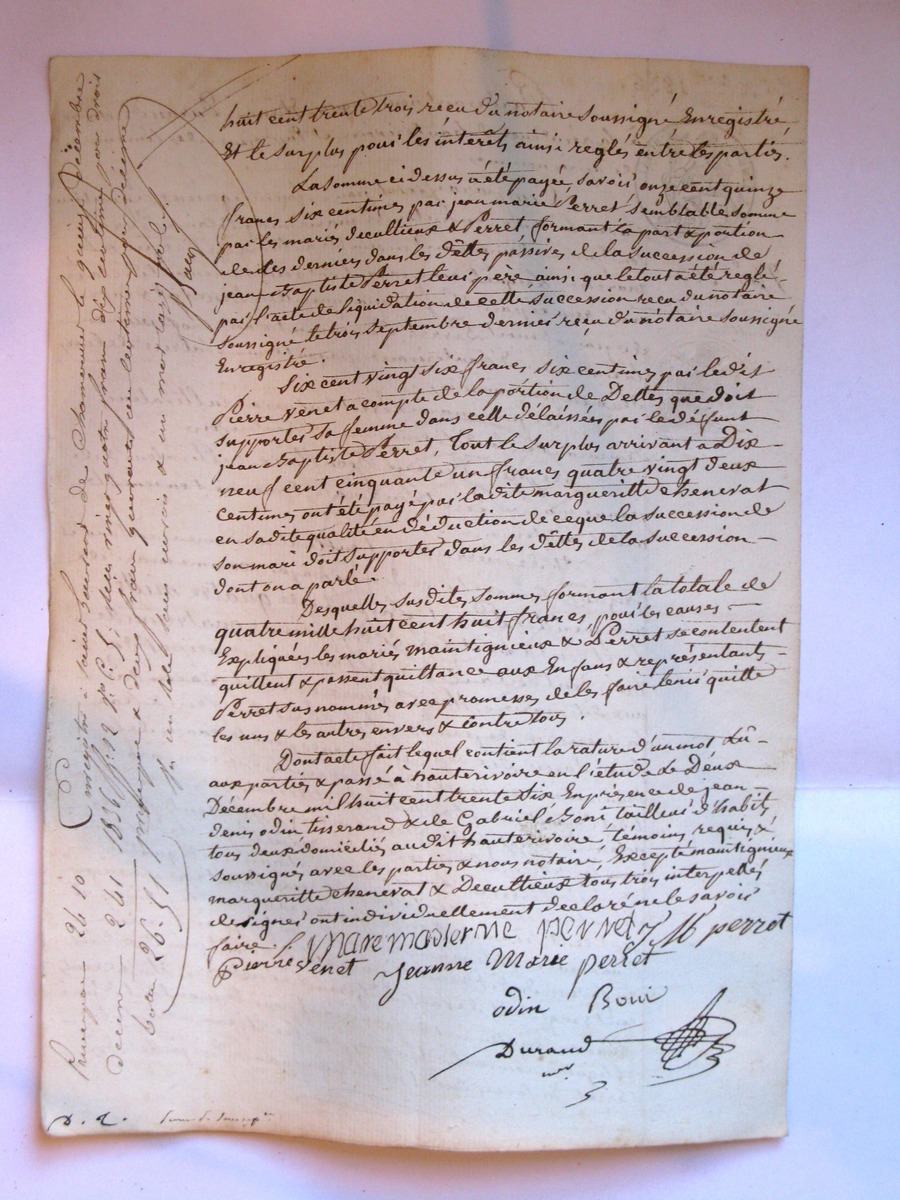 huit cent trente trois recu du notaire soussigné Enregistré
Et le surplus pour les intérets ainsi reglés entre les parties.
La somme ci dessus à été payée, savoir onze cent quinze
francs six centimes par jean marie Perret semblable somme
par les mariés decultieux & Perret, formant la part & portion
de des derniers dans les dêttes passives de la succession de
jean Baptiste Perret leur père, ainsi que le tout a été reglé
par l'acte de liquidation de cette succession recu du notaire
soussigné le trois Septembre dernier recu du notaire soussigné
Enregistré.
Six cent vingt six francs six centimes par le dit
Pierre Venet a compte de la portion de Dettes que doit
supporter sa femme dans celle délaissées par le défunt
jean Baptiste Perret, Tout le surplus arrivant a Dix
neuf cent cinquante un francs quatre vingt deux
centimes ont été payé par la dite margueritte chenevat
en sa dite qualité en déduction de ce que la succession de
son mari doit supporter dans les dêttes de la succession
dont on a parlé.
Desquelles susdites sommes formant la totale de
quatre mille huit cent huit francs, pour les causes
Expliquées les mariés maintignieux & Perret se contentent
quittent & passent quittance aux Enfans & représentants
Perret sus nommés avec promesses de les faire tenir quitte
les uns & les autres envers & contre tous.
Dont acte fait lequel contient la rature d'un mot Lû
aux parties & passé à hauterivoire en l'étude Le Deux
Décembre mil huit cent trente six En présence de jean
denis odin tisserand & de Gabriel Boni tailleur d'habits
tous deux domiciliés au dit hauterivoire, témoins requis &
soussignés avec les parties & nous notaire, Excepté maintignieux
margueritte chenevat & Decultieux tous trois interpellés
de signer ont individuellement declaré ne le savoir
faire.
mare maderne perret J M perrot
Pierre Venet Jeanne Marie perret
odin Boni
Durand
nre
Enregistré à Saint Laurent de Chamousset le quinze Décembre
1836 f° 12 r° C. 5: Reçu vingt quatre francs dix centimes pour droit
principal & deux francs quarante un centimes pour décime
Principal 24 10
decime 2 41
total 26. 51